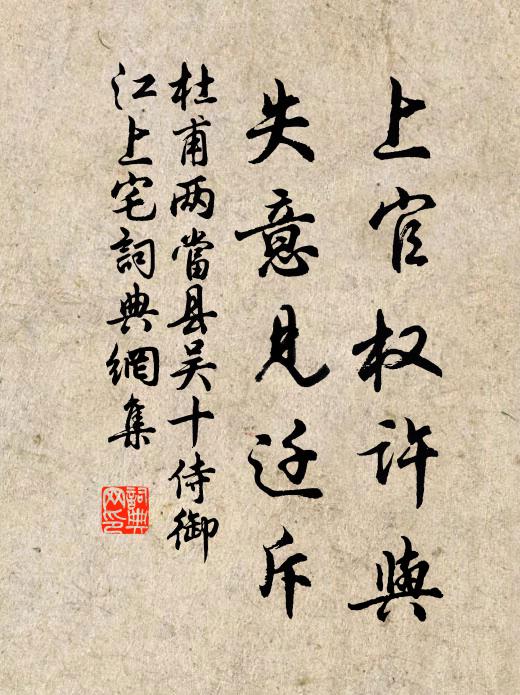 上官权许與
失意见迁斥
杜甫两當县吴十侍御
江上宅詞典網集
詞典网印